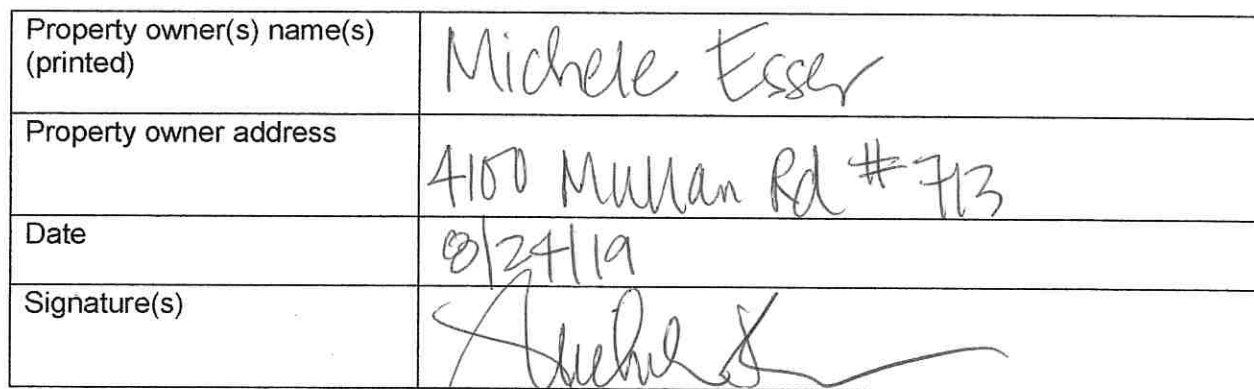 Property owner(s) name(s)
(printed)
Michele Esser
Property owner address
4100 Mullan Rd # 713
Date
8/24/19
Signature(s)